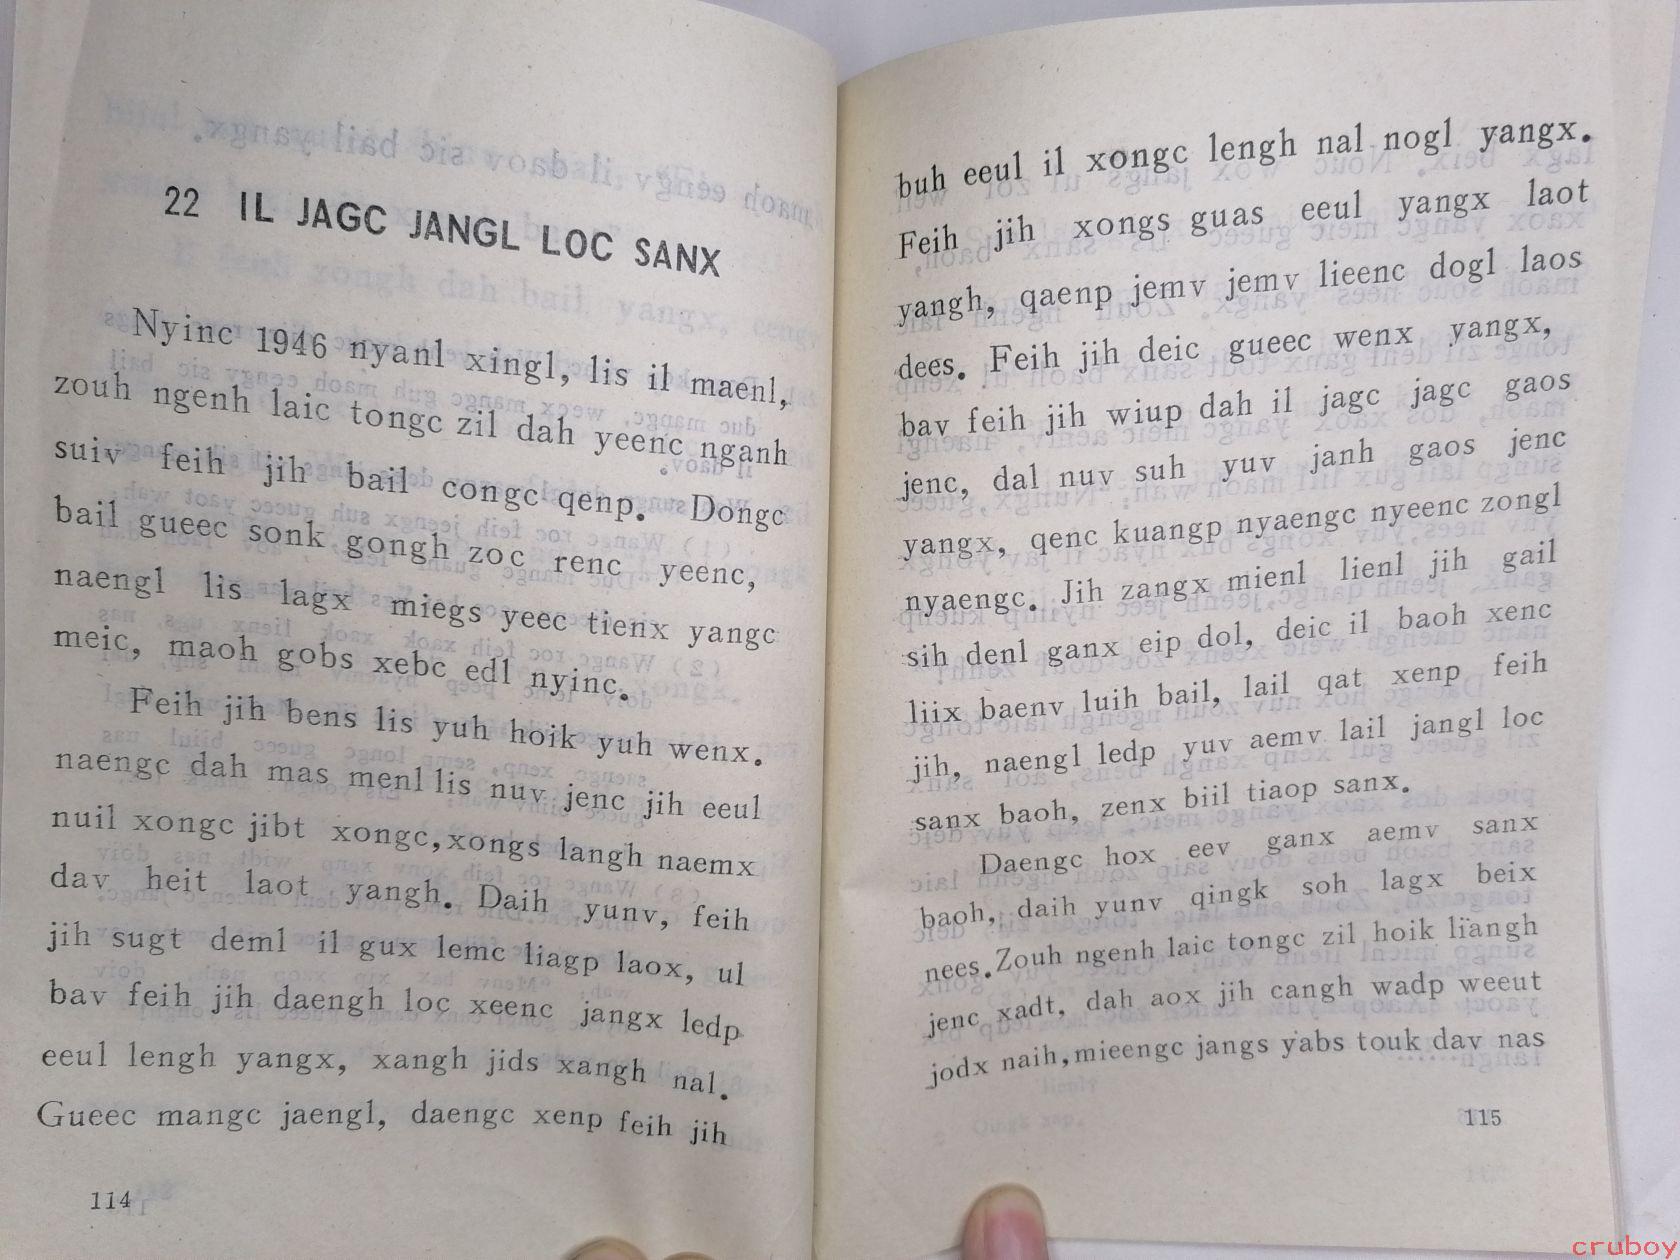 22 IL JAGC JANGL LOC SANX
Nyinc 1946 nyanl xingl, lis il maenl,
zouh ngenh laic tongc zil dah yeenc nganh
suiv feih jih bail congc qenp. Dongc
bail gueec sonk gongh zoc renc yeenc,
naengl lis lagx miegs yeec tienx yangc
meic, maoh gobs xebc edl nyinc.
Feih jih bens lis yuh hoik yuh wenx.
naengc dah mas menl lis nuv jenc jih eeul
nuil xongc jibt xongc, xongs langh naemx
dav heit laot yangh. Daih yunv, feih
jih sugt deml il gux lemc liagp laox, ul
bav feih jih daengh loc xeenc jangx ledp
eeul lengh yangx, xangh jids xangh nal.
Gueec mangc jaengl, daengc xenp feih jih
114
buh eeul il xongc lengh nal nogl yangx.
Feih jih xongs guas eeul yangx laot
yangh, qaenp jemv jemv lieenc dogl laos
dees. Feih jih deic gueec wenx yangx,
bav feih jih wiup dah il jagc jagc gaos
jenc, dal nuv suh yuv janh gaos jenc
yangx, qenc kuangp nyaengc nyeenc zongl
nyaengc. Jih zangx mienl lienl jih gail
sih denl ganx eip dol, deic il baoh xenc
liix baenv luih bail, lail qat xenp feih
jih, naengl ledp yuv aemv lail jangl loc
sanx baoh, zenx biil tiaop sanx.
Daengc hox eev ganx aemv sanx
baoh, daih yunv qingk soh lagx beix
nees. Zouh ngenh laic tongc zil hoik liangh
jenc xadt, dah aox jih cangh wadp weeut
jodx naih, mieengc jangs yabs touk dav nas
115
cruboy